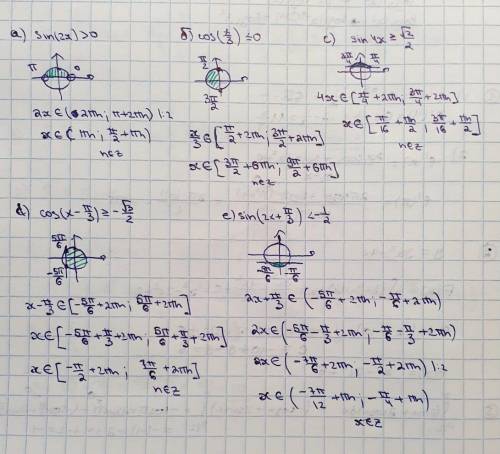 a) sin(2x)>0
π 0
2x∈(2πn; π+2πn) |:2
x∈(πn; π/2+πn)
n∈z
б) cos(x/3)≤0
π/2
3π/2
x/3∈[π/2+2πn; 3π/2+2πn]
x∈[3π/2+6πn; 9π/2+6πn]
n∈z
c) sin4x≥√2/2
3π/4 π/4
4x∈[π/4+2πn; 3π/4+2πn]
x∈[π/16+πn/2; 3π/16+πn/2]
n∈z
d) cos(x-π/3)≥-√3/2
5π/6
-5π/6
x-π/3∈[-5π/6+2πn; 5π/6+2πn]
x∈[-5π/6+π/3+2πn; 5π/6+π/3+2πn]
x∈[-π/2+2πn; 7π/6+2πn]
n∈z
e) sin(2x+π/3)<-1/2
-5π/6 -π/6
2x+π/3∈(-5π/6+2πn; -π/6+2πn)
2x∈(-5π/6-π/3+2πn; -π/6-π/3+2πn)
2x∈(-7π/6+2πn; -π/2+2πn) |:2
x∈(-7π/12+πn; -π/4+πn)
x∈z